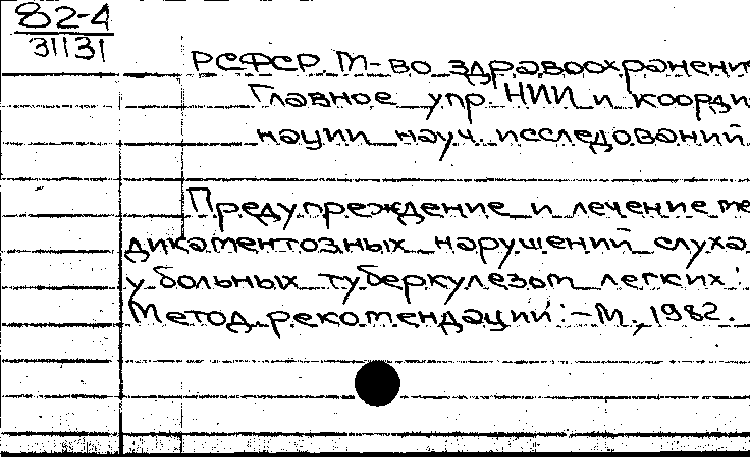 82-4
31131
РСФСР. М-во здравоохранени
Главное упр. НИИ и коорди
нации науч. исследований
Предупреждение и лечение ме
дикаментозных нарушений слуха
у больных туберкулезом легких:
Метод. рекомендации. - М., 1982.